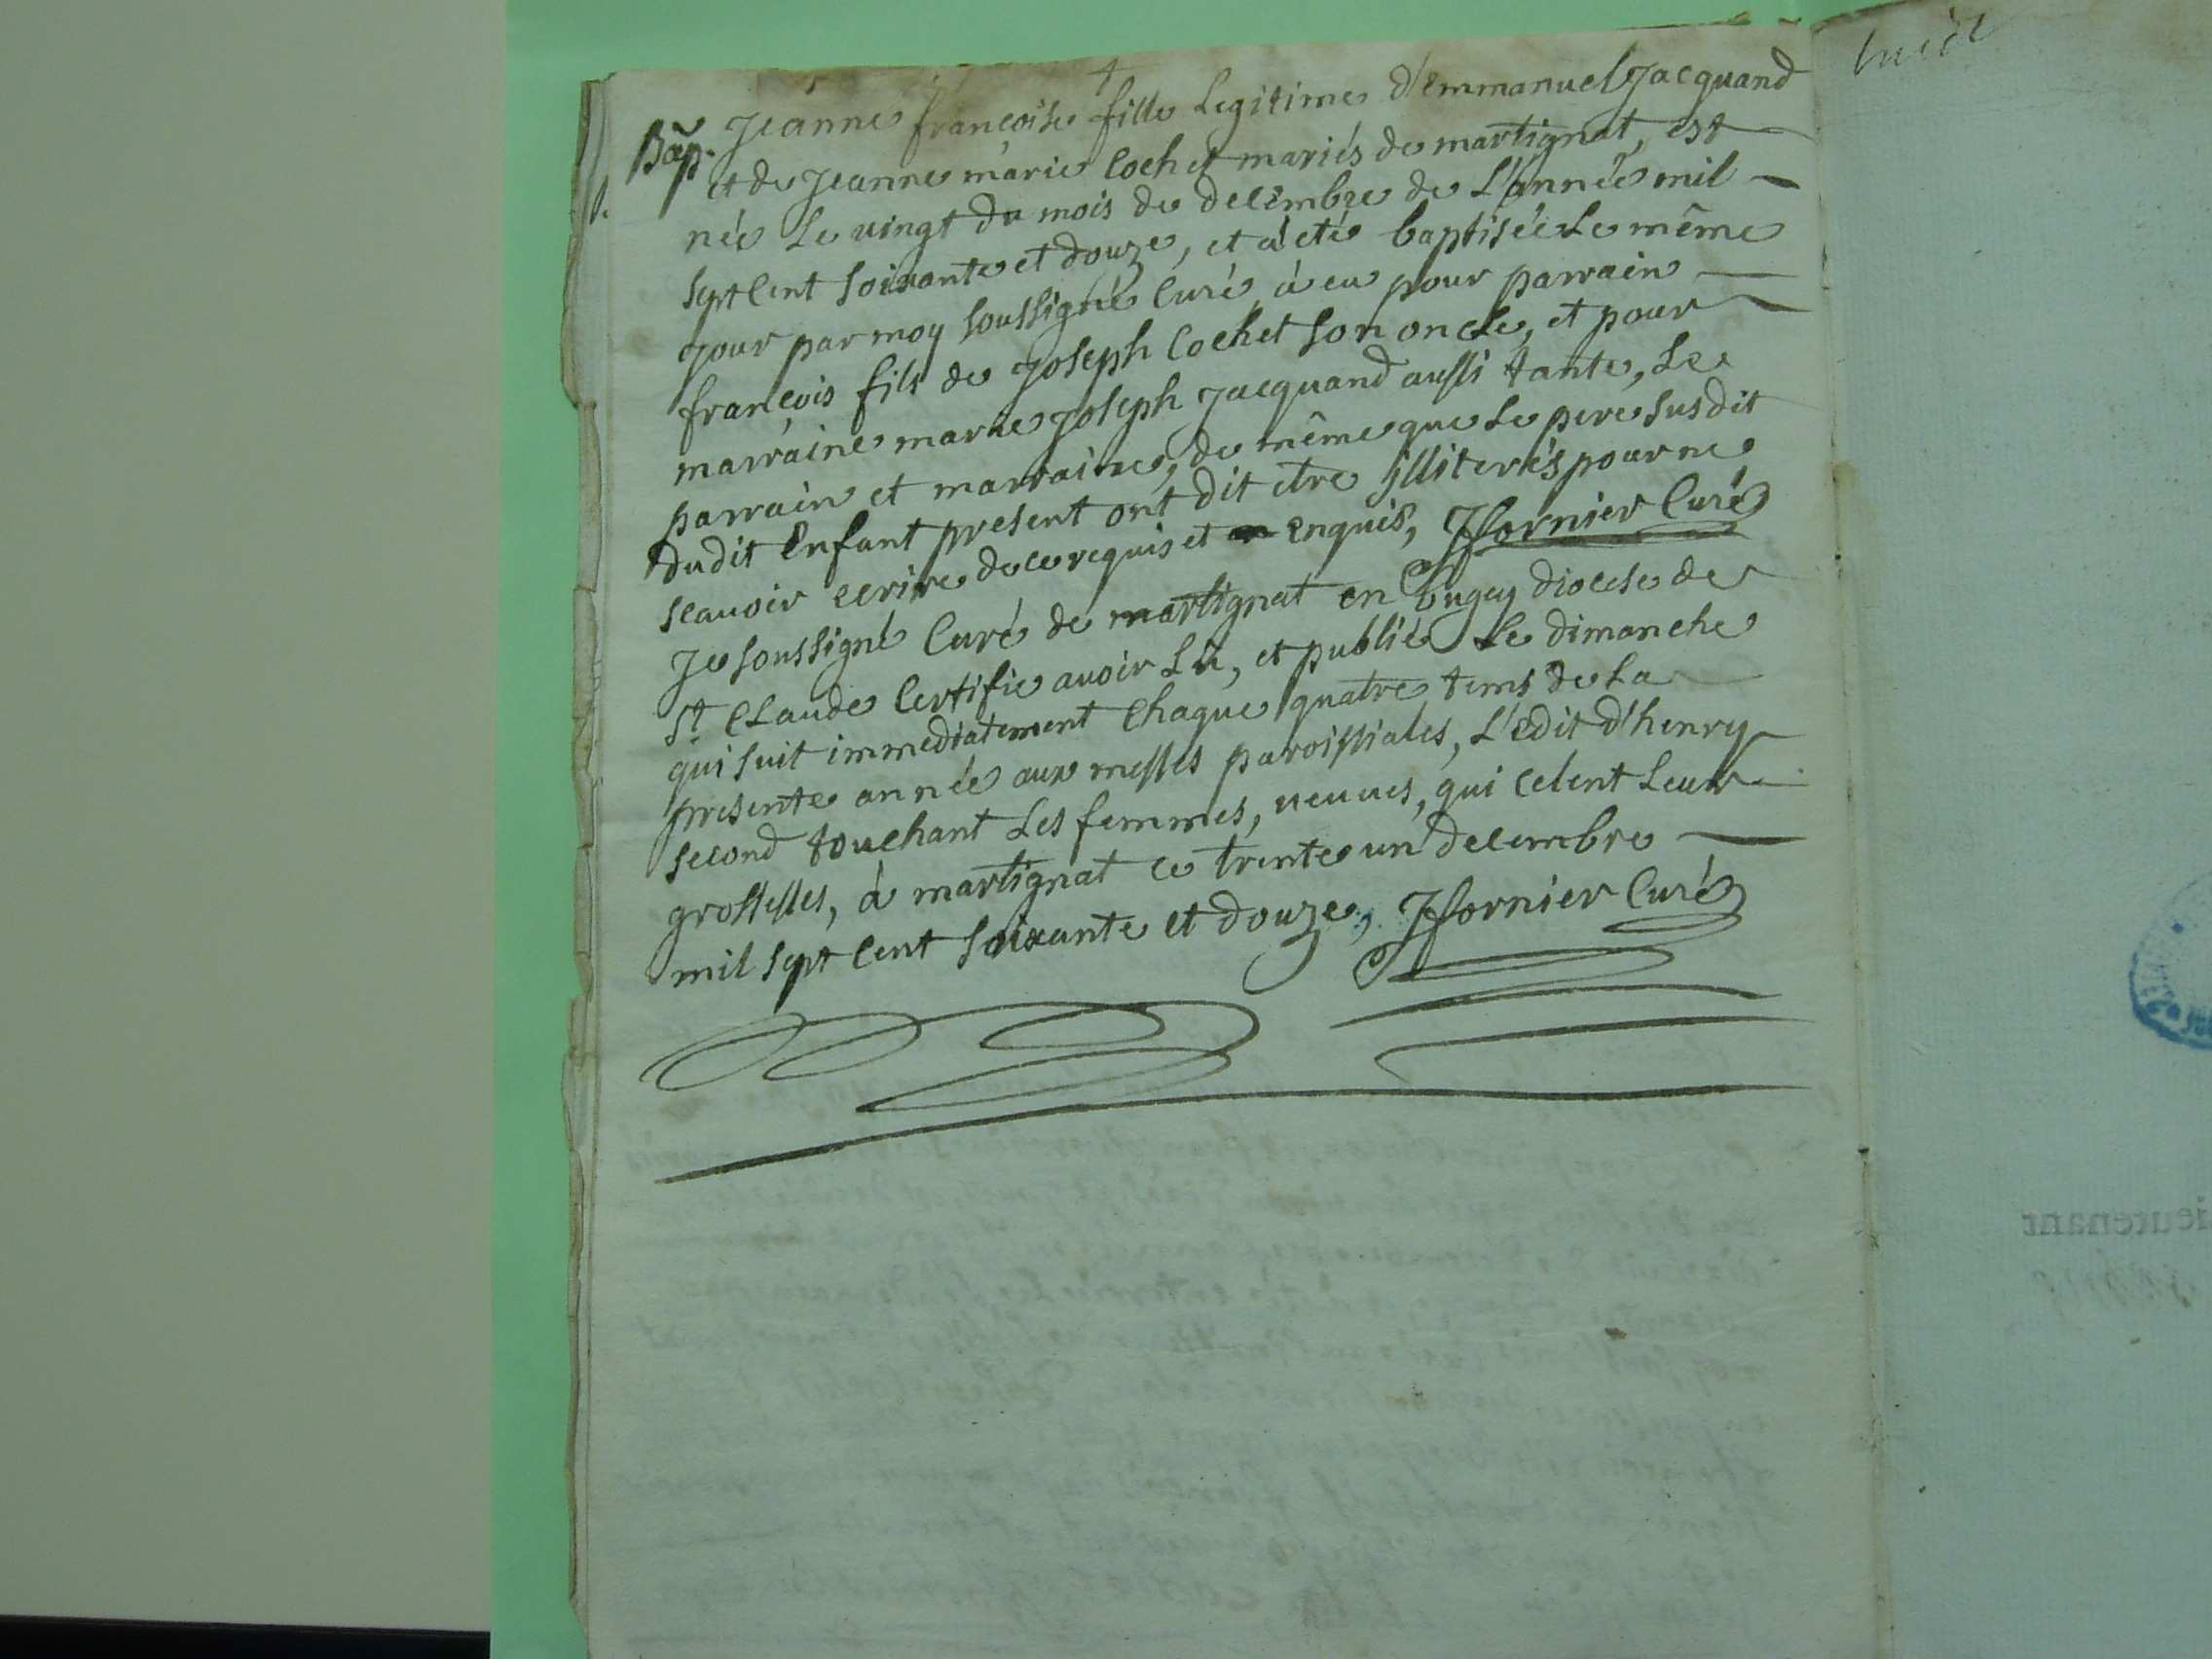 Bap. Jeanne françoise fille Legitime d'emmanuel Jacquand
et de Jeanne marie Cochet mariés de martignat, est
née Le vingt du mois de decembre de L'année mil
sept cent soixante et douze, et à eté baptisée Le même
jour par moy soussigné Curé, à eu pour parrain
françois fils de Joseph Cochet son oncle, et pour
marraine marie Joseph Jacquand aussi tante, Le
parrain et marraine, de même que Le pere susdit
dudit Enfant present ont dit etre illiterés pour ne
scavoir ecrire de ce requis et enquis, Jfornier Curé
Je soussigné Curé de martignat en bugey diocese de
St. Claude Certifie avoir Lû, et publié Le dimanche
qui suit immediatement Chaque quatre tems de La
presente année aux messes paroissiales, L'edit d'henry
second touchant Les femmes, veuves, qui celent Leur
grossesses, à martignat ce trente un decembre
mil sept cent soixante et douze, Jfornier Curé
ieutenant